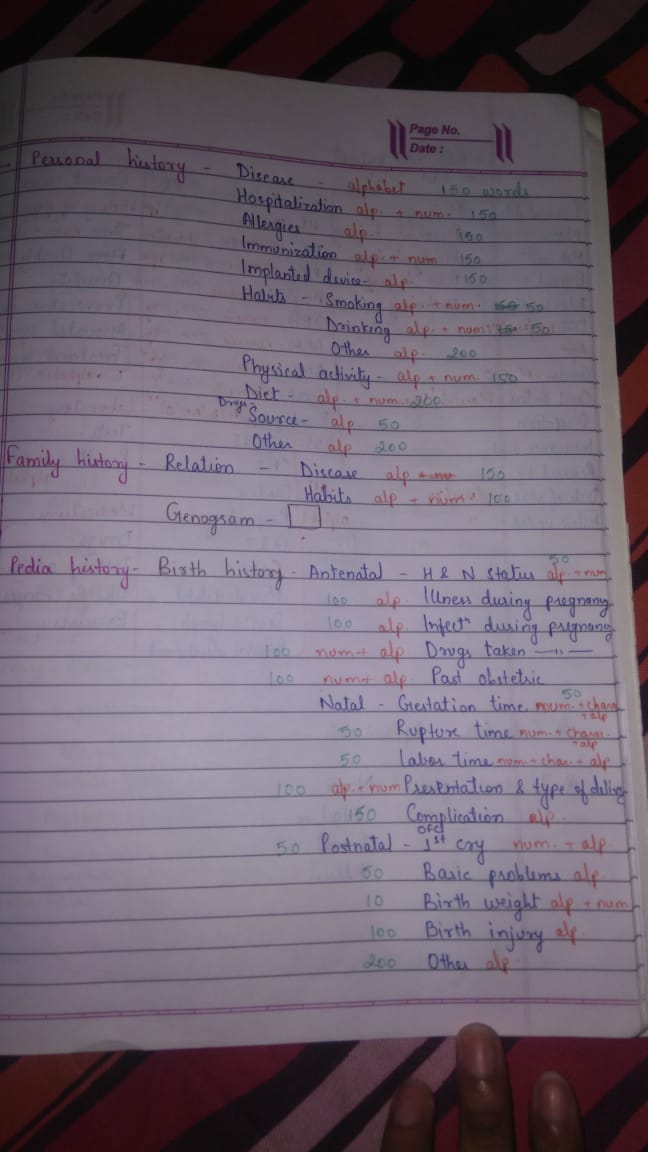 Page No.
Date :
Personal history - Disease - alphabet 150 words
Hospitalization alp. + num. 150
Allergies alp. 150
Immunization alp. + num 150
Implanted device - alp. 150
Habits - Smoking alp. + num. 150 50
Drinking alp. + num. 150 50
Other alp. 200
Physical activity - alp + num. 150
Diet - alp. + num. 200
Drugs Source - alp. 50
Other alp 200
Family history - Relation - Disease alp + nu 150
Habits alp + num. 100
Genogram -
Pedia history - Birth history - Antenatal - H & N status alp. + num 50
100 alp. Illness during pregnany
100 alp. Infectn during pregnany
100 num + alp Drugs taken —"—
100 num + alp. Past obstetric
Natal - Gestation time num. + chara + alp 50
50 Rupture time num. + charac. + alp
50 Labor time num. + char. + alp
100 alp. + num Presentation & type of delivy
150 Complication alp.
50 Postnatal - 1st cry num. + alp.
50 Basic problems alp.
10 Birth weight alp + num
100 Birth injury alp.
200 Other alp.